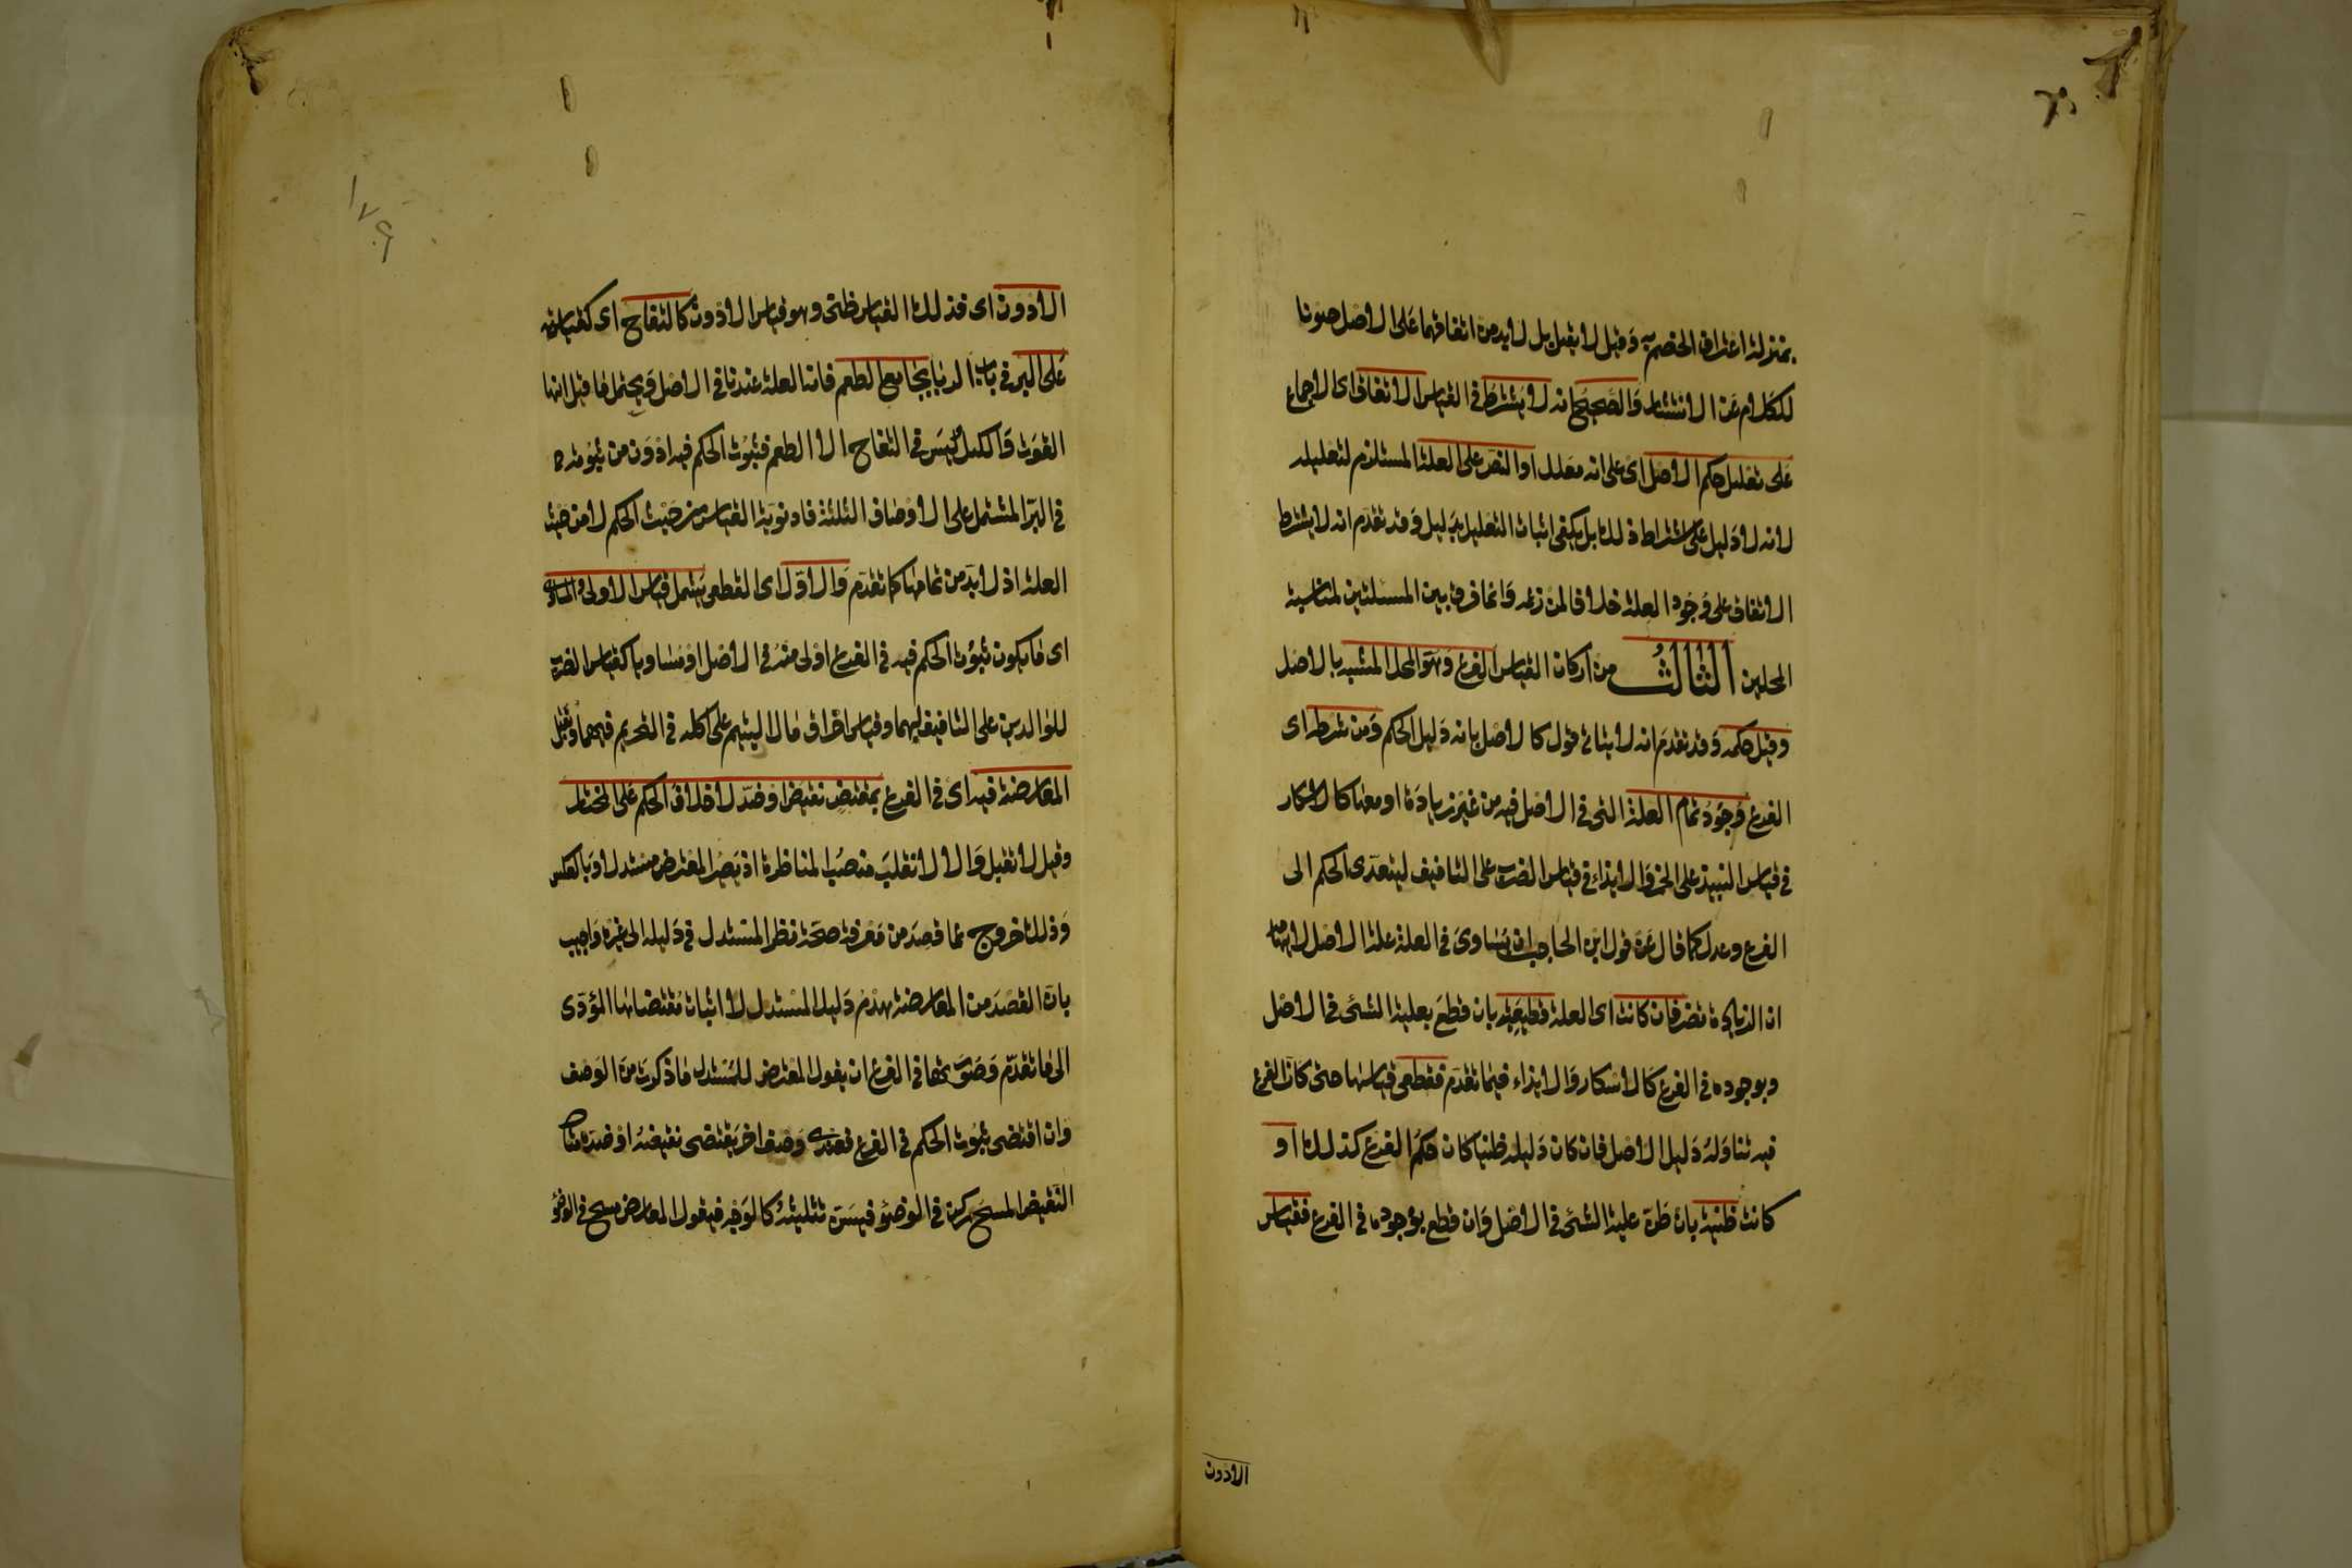 بمنزلة اعتراف الخصم به وقيل لا يقبل بل لا بد من اتفاقهما على الاصل صونا
للكلام عن الانتشار والصحيح انه لا يشترط في القياس الاتفاق اى الاجماع
على تعليل حكم الاصل اى على انه معلل او النص على العلة المستلزم لتعليله
لانه لا دليل على اشتراط ذلك بل يكفى اثبات التعليل بدليل وقد تقدم انه لا يشترط
الاتفاق على وجود العلة خلافا لمن زعمه وانما فرق بين المسئلتين لمناسبة
المحلين الثالث من اركان القياس الفرع وهو المحل المشبه بالاصل
وقيل حكمه وقد تقدم انه لا يتاتى قول كالاصل بانه دليل الحكم ومن شرطه اى
الفرع وجود تمام العلة التى في الاصل فيه من غير زيادة او معها كالاسكار
في قياس النبيذ على الخمر والايذاء في قياس الضرب على التافيف ليتعدى الحكم الى
الفرع وعدل كما قال عن قول ابن الحاجب ان يساوى في العلة علة الاصل لايهامه
ان الزيادة تضر فان كانت اى العلة قطعية بان قطع بعلية الشئ في الاصل
وبوجوده في الفرع كالاسكار والايذاء فيما تقدم فقطعى قياسها حتى كان الفرع
فيه تناوله دليل الاصل فان كان دليله ظنيا كان حكم الفرع كذلك او
كانت ظنية بان ظن علية الشئ في الاصل وان قطع بوجوده في الفرع فقياس
الادون
١٧٩
الادون اى فذلك القياس ظنى وهو قياس الادون كالتفاح اى كقياسه
على البر في باب الربا بجامع الطعم فانه العلة عندنا في الاصل ويحتمل ما قيل انها
القوت والكيل وليس في التفاح الا الطعم فثبوت الحكم فيه ادون من ثبوته
في البر المشتمل على الاوصاف الثلثة فادونية القياس من حيث الحكم لا من حيث
العلة اذ لا بد من تمامها كما تقدم والاول اى القطعى يشمل قياس الاولى والمساوى
اى ما يكون ثبوت الحكم فيه في الفرع اولى منه في الاصل او مساويا كقياس الضرب
للوالدين على التافيف لهما وقياس احراق مال اليتيم على اكله في التحريم فيهما وتقبل
المعارضة فيه اى في الفرع بمقتض نقيض او ضد لا خلاف الحكم على المختار
وقيل لا تقبل والا لانقلب منصب المناظرة اذ يصير المعترض مستدلا وبالعكس
وذلك خروج عما قصد من معرفة صحة نظر المستدل في دليله الى غيره واجيب
بان القصد من المعارضة هدم دليل المستدل لا اثبات مقتضاها المؤدى
الى ما تقدم وصورتها في الفرع ان يقول المعترض للمستدل ما ذكرت من الوصف
وان اقتضى ثبوت الحكم في الفرع فعندى وصف اخر يقتضى نقيضه او ضده مثال
النقيض المسح ركن في الوضؤ فيسن تثليثه كالوجه فيقول المعارض مسح في الوضؤ